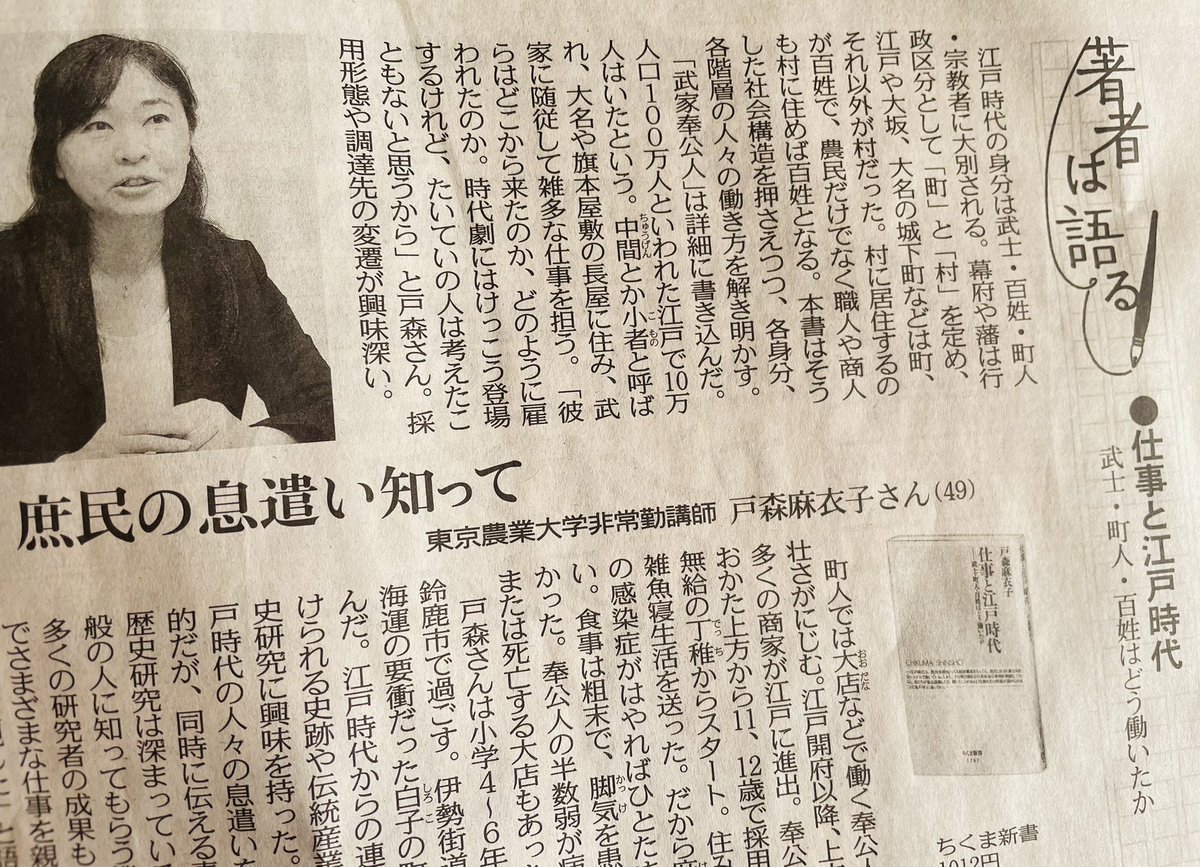 著者は語る
●仕事と江戸時代
武士・町人・百姓はどう働いたか
江戸時代の身分は武士・百姓・町人
・宗教者に大別される。幕府や藩は行
政区分として「町」と「村」を定め、
江戸や大坂、大名の城下町などは町、
それ以外が村だった。村に居住するの
が百姓で、農民だけでなく職人や商人
も村に住めば百姓となる。本書はそう
した社会構造を押さえつつ、各身分、
各階層の人々の働き方を解き明かす。
「武家奉公人」は詳細に書き込んだ。
人口100万人といわれた江戸で10万
人はいたという。中間とか小者と呼ば
れ、大名や旗本屋敷の長屋に住み、武
家に随従して雑多な仕事を担う。「彼
らはどこから来たのか、どのように雇
われたのか。時代劇にはけっこう登場
するけれど、たいていの人は考えたこ
ともないと思うから」と戸森さん。採
用形態や調達先の変遷が興味深い。
ちゅうげん
こもの
庶民の息遣い知って
東京農業大学非常勤講師 戸森麻衣子さん(49)
戸森麻衣子
仕事と江戸時代
CHIKUMA SHINSHO
ちくま新書
ちくま新書
1012円
町人では大店などで働く奉公
壮さがにじむ。江戸開府以降、上
多くの商家が江戸に進出。奉公
おかた上方から11、12歳で採用
無給の丁稚からスタート。住み
雑魚寝生活を送った。だから
の感染症がはやればひとた
い。食事は粗末で、脚気を患
かった。奉公人の半数弱が病
または死亡する大店もあっ
おおだな
でっち
かっけ
戸森さんは小学4〜6年
鈴鹿市で過ごす。伊勢街道
海運の要衝だった白子の町
んだ。江戸時代からの連
けられる史跡や伝統産業
史研究に興味を持った。
戸時代の人々の息遣いを
的だが、同時に伝える
歴史研究は深まってい
般の人に知ってもらう
多くの研究者の成果も
でさまざまな仕事を親
しろこ